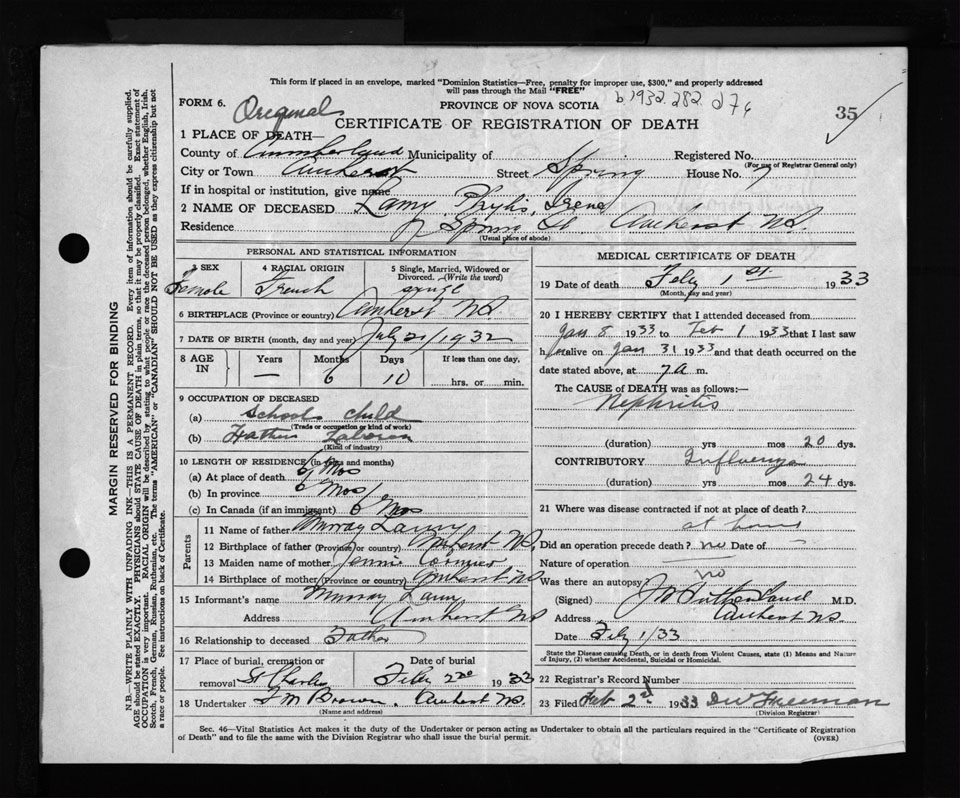 This form if placed in an envelope, marked "Dominion Statistics—Free, penalty for improper use, $300," and properly addressed
will pass through the Mail "FREE"
FORM 6. Original
PROVINCE OF NOVA SCOTIA
b 1932.282.276
35
CERTIFICATE OF REGISTRATION OF DEATH
1 PLACE OF DEATH—
County of Cumberland Municipality of Registered No.
(For use of Registrar General only)
City or Town Amherst Street Spring House No. 7
If in hospital or institution, give name
2 NAME OF DECEASED Lamy, Phylis, Irene
Residence 7 Spring St Amherst N.S.
(Usual place of abode)
PERSONAL AND STATISTICAL INFORMATION
3 SEX 4 RACIAL ORIGIN 5 Single, Married, Widowed or Divorced.—(Write the word)
Female French single
6 BIRTHPLACE (Province or country) Amherst NS
7 DATE OF BIRTH (month, day and year) July 21/1932
8 AGE IN Years Months Days If less than one day,
— 6 10 hrs. or min.
9 OCCUPATION OF DECEASED
(a) School child
(Trade or occupation or kind of work)
(b) Father Laborer
(Kind of industry)
10 LENGTH OF RESIDENCE (in years and months)
(a) At place of death 6 Mos
(b) In province 6 Mos
(c) In Canada (if an immigrant) 6 Mos
Parents
11 Name of father Murray Lamy
12 Birthplace of father (Province or country) Amherst NS.
13 Maiden name of mother Jennie Cormier
14 Birthplace of mother (Province or country) Amherst NS
15 Informant's name Murray Lamy
Address Amherst NS
16 Relationship to deceased Father
17 Place of burial, cremation or removal St Charles Date of burial Feb 2nd 1933
18 Undertaker F M Brown. Amherst NS.
(Name and address)
MEDICAL CERTIFICATE OF DEATH
19 Date of death Feby 1st. 1933
(Month, day and year)
20 I HEREBY CERTIFY that I attended deceased from
Jan 8 1933 to Feb 1 1933 that I last saw
her alive on Jan 31 1933 and that death occurred on the
date stated above, at 7 a m.
The CAUSE of DEATH was as follows:—
Nephritis
(duration) yrs mos 20 dys.
CONTRIBUTORY Influenza
(duration) yrs mos 24 dys.
21 Where was disease contracted if not at place of death?
at home
Did an operation precede death? no Date of —
Nature of operation
Was there an autopsy? no
(Signed) J M Sutherland M.D.
Address Amherst NS.
Date Feby 1/33
State the Disease causing Death, or in death from Violent Causes, state (1) Means and Nature
of Injury, (2) whether Accidental, Suicidal or Homicidal.
22 Registrar's Record Number
23 Filed Feb 2nd 1933 Freeman
(Division Registrar)
Sec. 46—Vital Statistics Act makes it the duty of the Undertaker or person acting as Undertaker to obtain all the particulars required in the "Certificate of Registration
of Death" and to file the same with the Division Registrar who shall issue the burial permit.
(OVER)
MARGIN RESERVED FOR BINDING
N.B.—WRITE PLAINLY WITH UNFADING INK—THIS IS A PERMANENT RECORD. Every item of information should be carefully supplied.
AGE should be stated EXACTLY. PHYSICIANS should STATE CAUSE OF DEATH in plain terms, so that it may be properly classified. Exact statement of
OCCUPATION is very important. RACIAL ORIGIN will be described by stating to what people or race the deceased person belonged, whether English, Irish,
Scotch, French, German, Russian, Ruthenian, etc. The terms "AMERICAN" or "CANADIAN" SHOULD NOT BE USED as they express citizenship but not
a race or people. See instructions on back of Certificate.